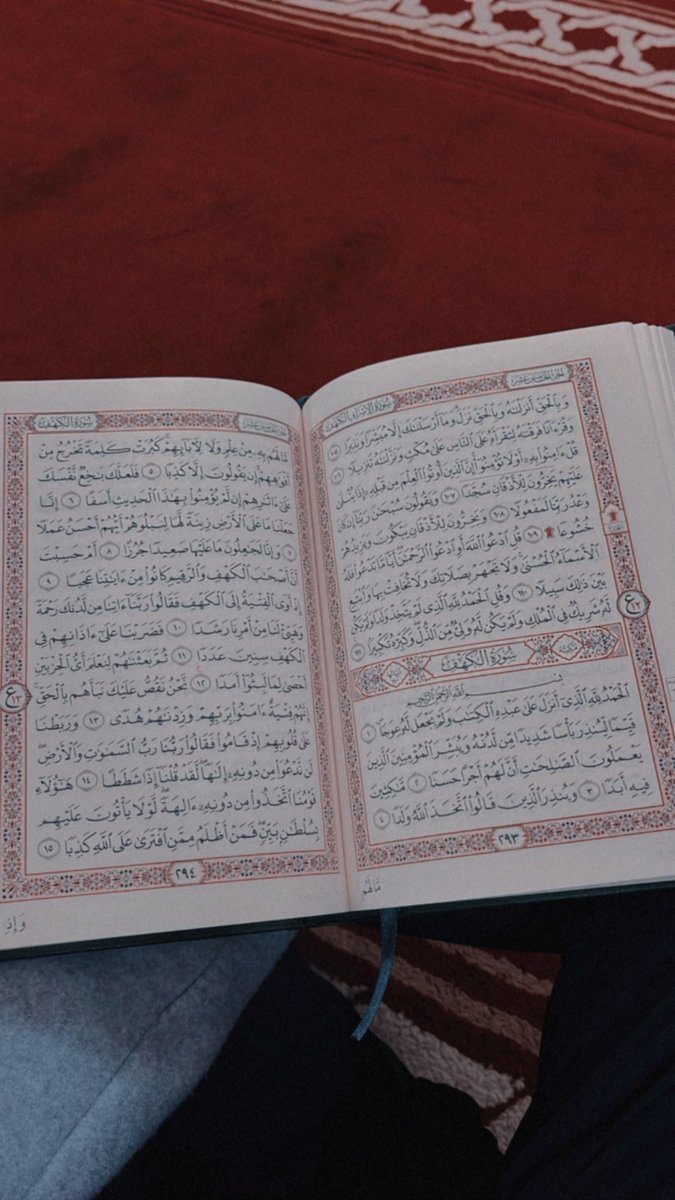 الجزء الخامس عشر
سُورَةُ الإِسْرَاءِ الكَهْفِ
وَبِٱلْحَقِّ أَنزَلْنَٰهُ وَبِٱلْحَقِّ نَزَلَۗ وَمَآ أَرْسَلْنَٰكَ إِلَّا مُبَشِّرًا وَنَذِيرًا ١٠٥
وَقُرْءَانًا فَرَقْنَٰهُ لِتَقْرَأَهُۥ عَلَى ٱلنَّاسِ عَلَىٰ مُكْثٍ وَنَزَّلْنَٰهُ تَنزِيلًا ١٠٦
قُلْ ءَامِنُوا۟ بِهِۦٓ أَوْ لَا تُؤْمِنُوٓا۟ۚ إِنَّ ٱلَّذِينَ أُوتُوا۟ ٱلْعِلْمَ مِن قَبْلِهِۦٓ إِذَا يُتْلَىٰ
عَلَيْهِمْ يَخِرُّونَ لِلْأَذْقَانِ سُجَّدًا ١٠٧ وَيَقُولُونَ سُبْحَٰنَ رَبِّنَآ إِن كَانَ
وَعْدُ رَبِّنَا لَمَفْعُولًا ١٠٨ وَيَخِرُّونَ لِلْأَذْقَانِ يَبْكُونَ وَيَزِيدُهُمْ
خُشُوعًا ۩ ١٠٩ قُلِ ٱدْعُوا۟ ٱللَّهَ أَوِ ٱدْعُوا۟ ٱلرَّحْمَٰنَۖ أَيًّا مَّا تَدْعُوا۟ فَلَهُ
ٱلْأَسْمَآءُ ٱلْحُسْنَىٰۚ وَلَا تَجْهَرْ بِصَلَاتِكَ وَلَا تُخَافِتْ بِهَا وَٱبْتَغِ
بَيْنَ ذَٰلِكَ سَبِيلًا ١١٠ وَقُلِ ٱلْحَمْدُ لِلَّهِ ٱلَّذِى لَمْ يَتَّخِذْ وَلَدًا وَلَمْ يَكُن
لَّهُۥ شَرِيكٌ فِى ٱلْمُلْكِ وَلَمْ يَكُن لَّهُۥ وَلِىٌّ مِّنَ ٱلذُّلِّۖ وَكَبِّرْهُ تَكْبِيرًۢا ١١١
سُورَةُ الكَهْفِ
بِسْمِ ٱللَّهِ ٱلرَّحْمَٰنِ ٱلرَّحِيمِ
ٱلْحَمْدُ لِلَّهِ ٱلَّذِىٓ أَنزَلَ عَلَىٰ عَبْدِهِ ٱلْكِتَٰبَ وَلَمْ يَجْعَل لَّهُۥ عِوَجَاۜ ١
قَيِّمًا لِّيُنذِرَ بَأْسًا شَدِيدًا مِّن لَّدُنْهُ وَيُبَشِّرَ ٱلْمُؤْمِنِينَ ٱلَّذِينَ
يَعْمَلُونَ ٱلصَّٰلِحَٰتِ أَنَّ لَهُمْ أَجْرًا حَسَنًا ٢ مَّٰكِثِينَ
فِيهِ أَبَدًا ٣ وَيُنذِرَ ٱلَّذِينَ قَالُوا۟ ٱتَّخَذَ ٱللَّهُ وَلَدًا ٤
٢٩٣
مَّا لَهُم
الجزء الخامس عشر
سُورَةُ الكَهْفِ
مَّا لَهُم بِهِۦ مِنْ عِلْمٍ وَلَا لِءَابَآئِهِمْۚ كَبُرَتْ كَلِمَةً تَخْرُجُ مِنْ
أَفْوَٰهِهِمْۚ إِن يَقُولُونَ إِلَّا كَذِبًا ٥ فَلَعَلَّكَ بَٰخِعٌ نَّفْسَكَ
عَلَىٰٓ ءَاثَٰرِهِمْ إِن لَّمْ يُؤْمِنُوا۟ بِهَٰذَا ٱلْحَدِيثِ أَسَفًا ٦ إِنَّا
جَعَلْنَا مَا عَلَى ٱلْأَرْضِ زِينَةً لَّهَا لِنَبْلُوَهُمْ أَيُّهُمْ أَحْسَنُ عَمَلًا
٧ وَإِنَّا لَجَٰعِلُونَ مَا عَلَيْهَا صَعِيدًا جُرُزًا ٨ أَمْ حَسِبْتَ
أَنَّ أَصْحَٰبَ ٱلْكَهْفِ وَٱلرَّقِيمِ كَانُوا۟ مِنْ ءَايَٰتِنَا عَجَبًا ٩
إِذْ أَوَى ٱلْفِتْيَةُ إِلَى ٱلْكَهْفِ فَقَالُوا۟ رَبَّنَآ ءَاتِنَا مِن لَّدُنكَ رَحْمَةً
وَهَيِّئْ لَنَا مِنْ أَمْرِنَا رَشَدًا ١٠ فَضَرَبْنَا عَلَىٰٓ ءَاذَانِهِمْ فِى
ٱلْكَهْفِ سِنِينَ عَدَدًا ١١ ثُمَّ بَعَثْنَٰهُمْ لِنَعْلَمَ أَىُّ ٱلْحِزْبَيْنِ
أَحْصَىٰ لِمَا لَبِثُوٓا۟ أَمَدًا ١٢ نَّحْنُ نَقُصُّ عَلَيْكَ نَبَأَهُم بِٱلْحَقِّۚ
إِنَّهُمْ فِتْيَةٌ ءَامَنُوا۟ بِرَبِّهِمْ وَزِدْنَٰهُمْ هُدًى ١٣ وَرَبَطْنَا
عَلَىٰ قُلُوبِهِمْ إِذْ قَامُوا۟ فَقَالُوا۟ رَبُّنَا رَبُّ ٱلسَّمَٰوَٰتِ وَٱلْأَرْضِ
لَن نَّدْعُوَا۟ مِن دُونِهِۦٓ إِلَٰهًاۖ لَّقَدْ قُلْنَآ إِذًا شَطَطًا ١٤ هَٰٓؤُلَآءِ
قَوْمُنَا ٱتَّخَذُوا۟ مِن دُونِهِۦٓ ءَالِهَةًۖ لَّوْلَا يَأْتُونَ عَلَيْهِم
بِسُلْطَٰنٍۭ بَيِّنٍۖ فَمَنْ أَظْلَمُ مِمَّنِ ٱفْتَرَىٰ عَلَى ٱللَّهِ كَذِبًا ١٥
٢٩٤
وَإِذِ